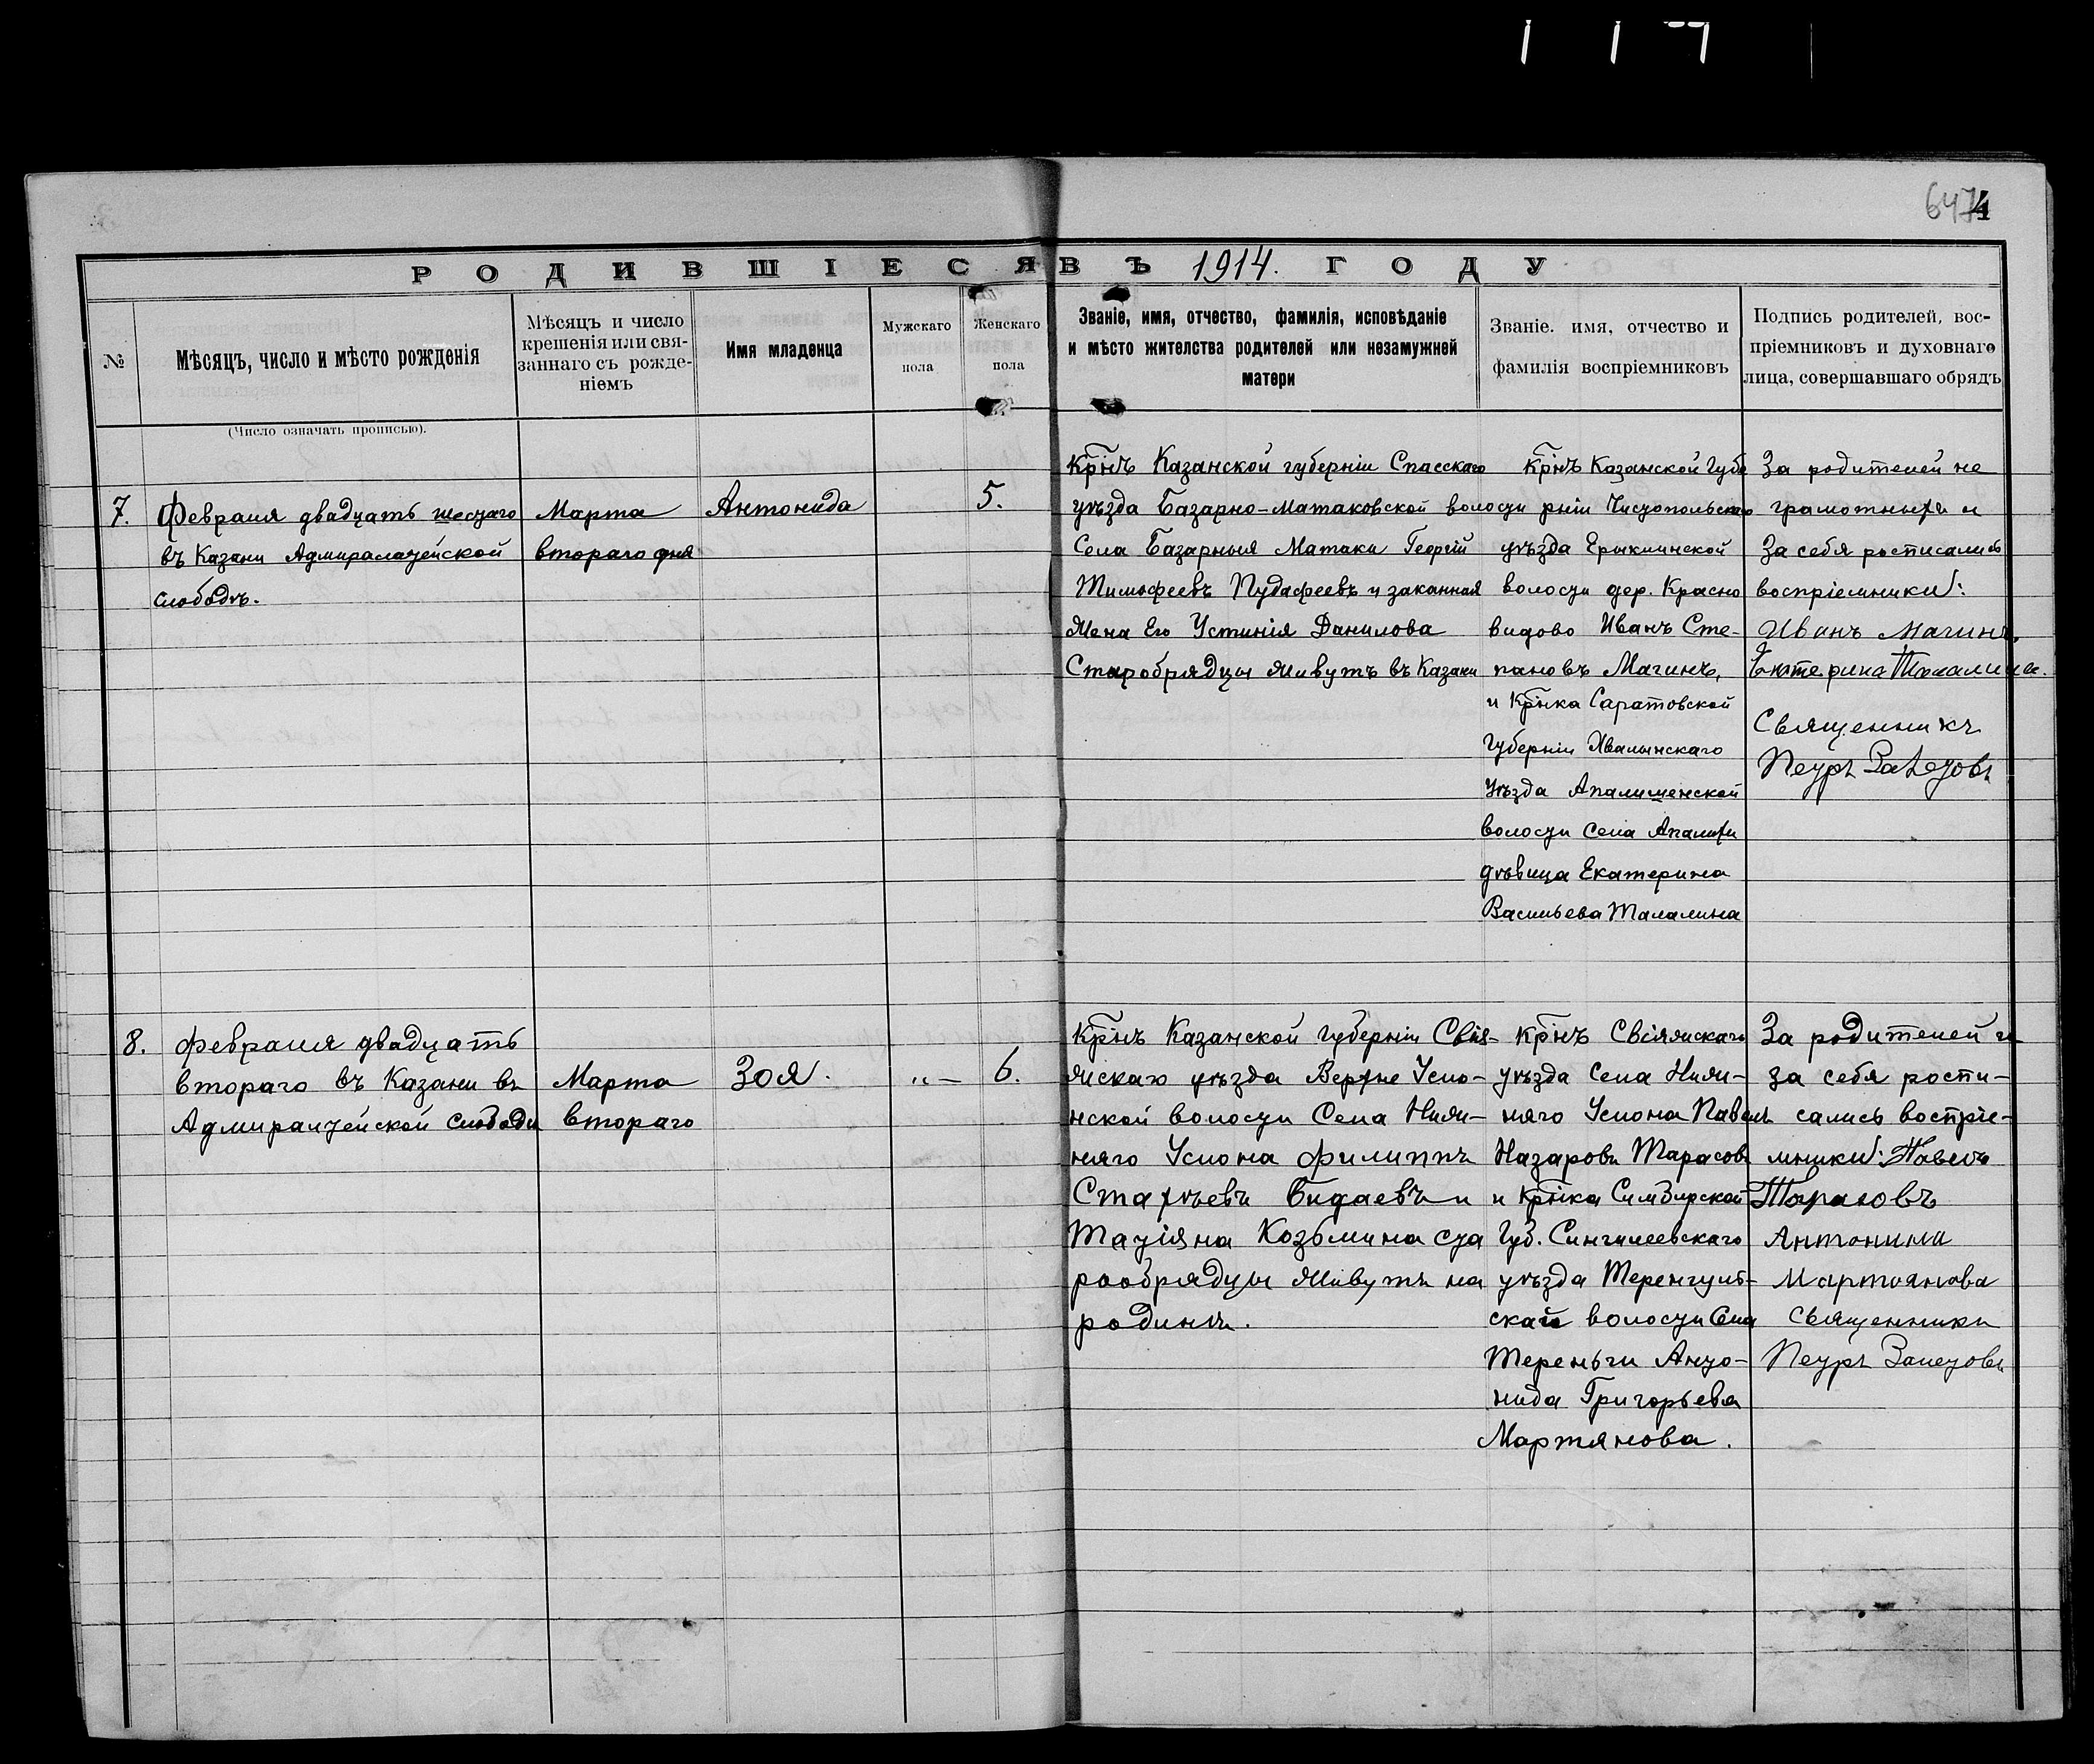 6474
РОДИВШІЕСЯ ВЪ 1914. ГОДУ
№
Мѣсяцъ, число и мѣсто рожденія
Мѣсяцъ и число
крещенія или свя-
заннаго съ рожде-
ніемъ
Имя младенца
Мужскаго
пола
Женскаго
пола
Званіе, имя, отчество, фамилія, исповѣданіе
и мѣсто жителства родителей или незамужней
матери
Званіе. имя, отчество и
фамилія воспріемниковъ
Подпись родителей, вос-
пріемниковъ и духовнаго
лица, совершавшаго обрядъ
(Число означать прописью).
7.
Февраля двадцать шестаго
въ Казани Адмиралтейской
слободѣ.
Марта
втораго дня
Антонида
5.
Крнъ Казанской губерніи Спасскаго
уѣзда Базарно-Матаковской волости
Села Базарныя Матаки Георгій
Тимофеевъ Пудафеевъ и законная
Жена Его Устинія Данилова
Старобрядцы Живутъ въ Казани
Крнъ Казанской Губе
рніи Чистопольскаго
уѣзда Ерыклинской
волости дер. Красно
видово Иванъ Сте-
пановъ Мачинъ,
и Крнка Саратовской
Губерніи Хвалынскаго
Уѣзда Апалишенской
волости села Апалихи
дѣвица Екатерина
Васильева Талалина
За родителей не
грамотныхъ и
За себя росписались
воспріемники:
Иванъ Мачинъ.
Екатерина Талалина.
Священникъ
Петръ Залетовъ
8.
Февраля двадцать
втораго въ Казани въ
Адмиралтейской Слободѣ
Марта
втораго
Зоя.
"–
6.
Крнъ Казанской Губерніи Свія-
жскаго уѣзда Верхне Усло-
нской волости Села Ниж-
няго Услона Филиппъ
Стахѣевъ Бидаевъ и
Татіяна Козьмина ста
рообрядцы Живутъ на
родинѣ.
Крнъ Свіяжскаго
уѣзда Села Ниж-
няго Услона Павелъ
Назаровъ Тарасовъ
и Крнка Симбирской
Губ. Сингилеевскаго
уѣзда Теренгуль-
ской волости Села
Тереньги Анто-
нида Григорьева
Мартянова.
За родителей и
за себя роспи-
сались воспріе-
мники: Павелъ
Тарасовъ
Антонина
Мартоянова
Священникъ
Петръ Залетовъ